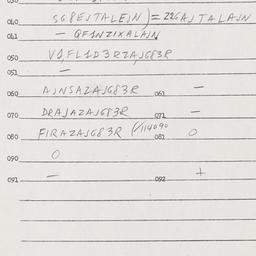 040 SG8EJTALEJN) = 226AJTALAJN
041 - QF1NZIXALAJN
050 V1,FL1D3RZAJG83R
051 -
060 AJNSAZAJG83R 061 -
070 DRAJAZAJG83R 071 -
080 FIRAZAJG83R (/114090 081 O
090 O
091 - 092 +